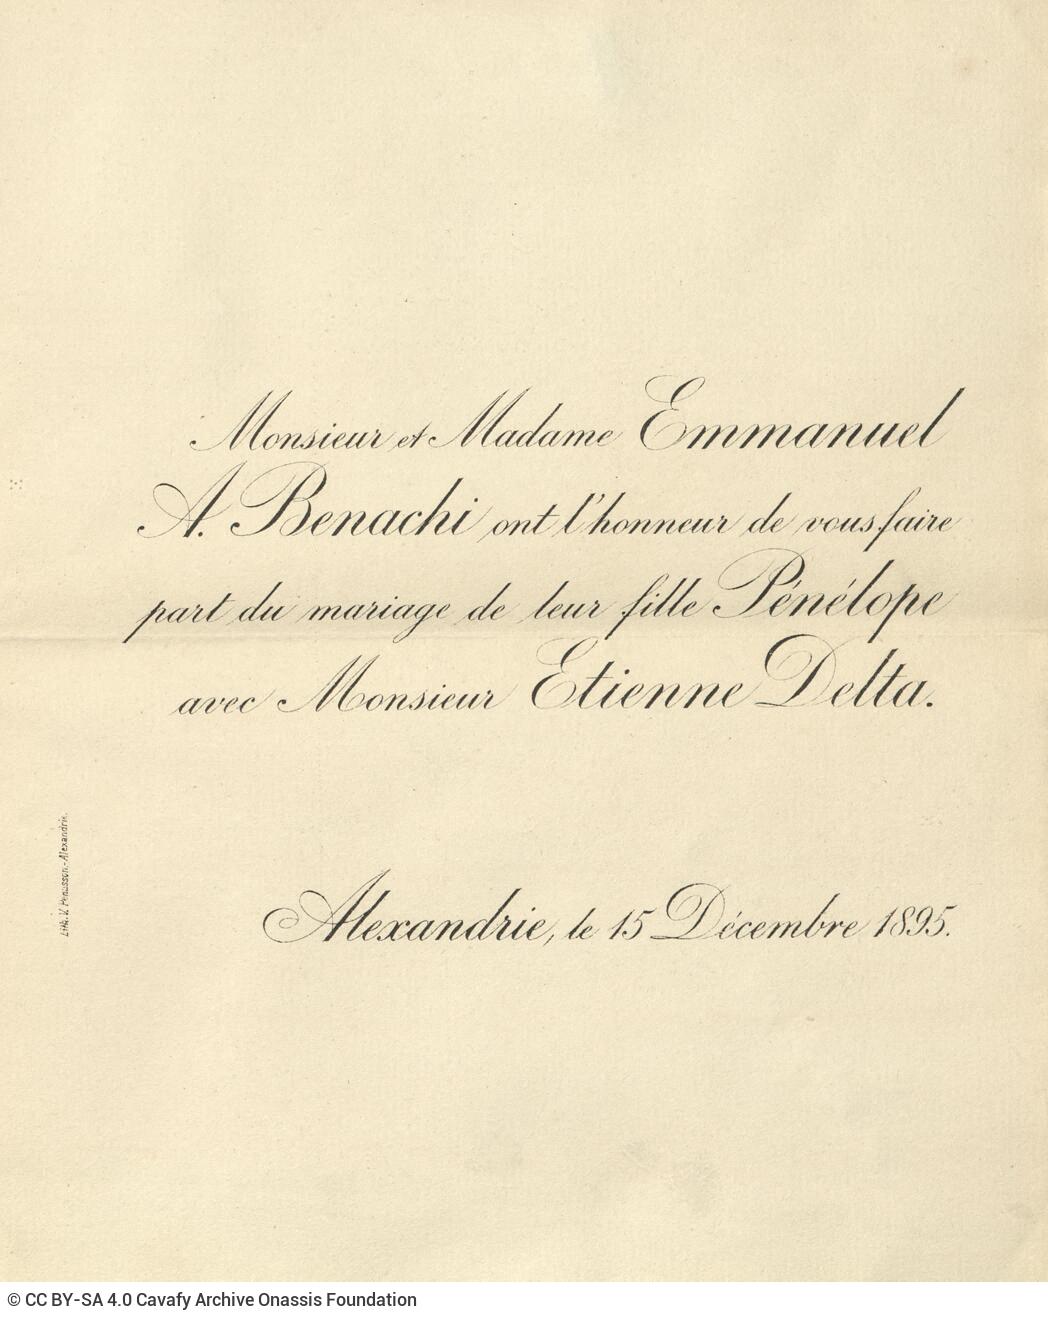 Monsieur et Madame Emmanuel
A. Benachi ont l'honneur de vous faire
part du mariage de leur fille Pénélope
avec Monsieur Etienne Delta.
Alexandrie, le 15 Décembre 1895.
Lith. V. Penasson.-Alexandrie.
© CC BY-SA 4.0 Cavafy Archive Onassis Foundation